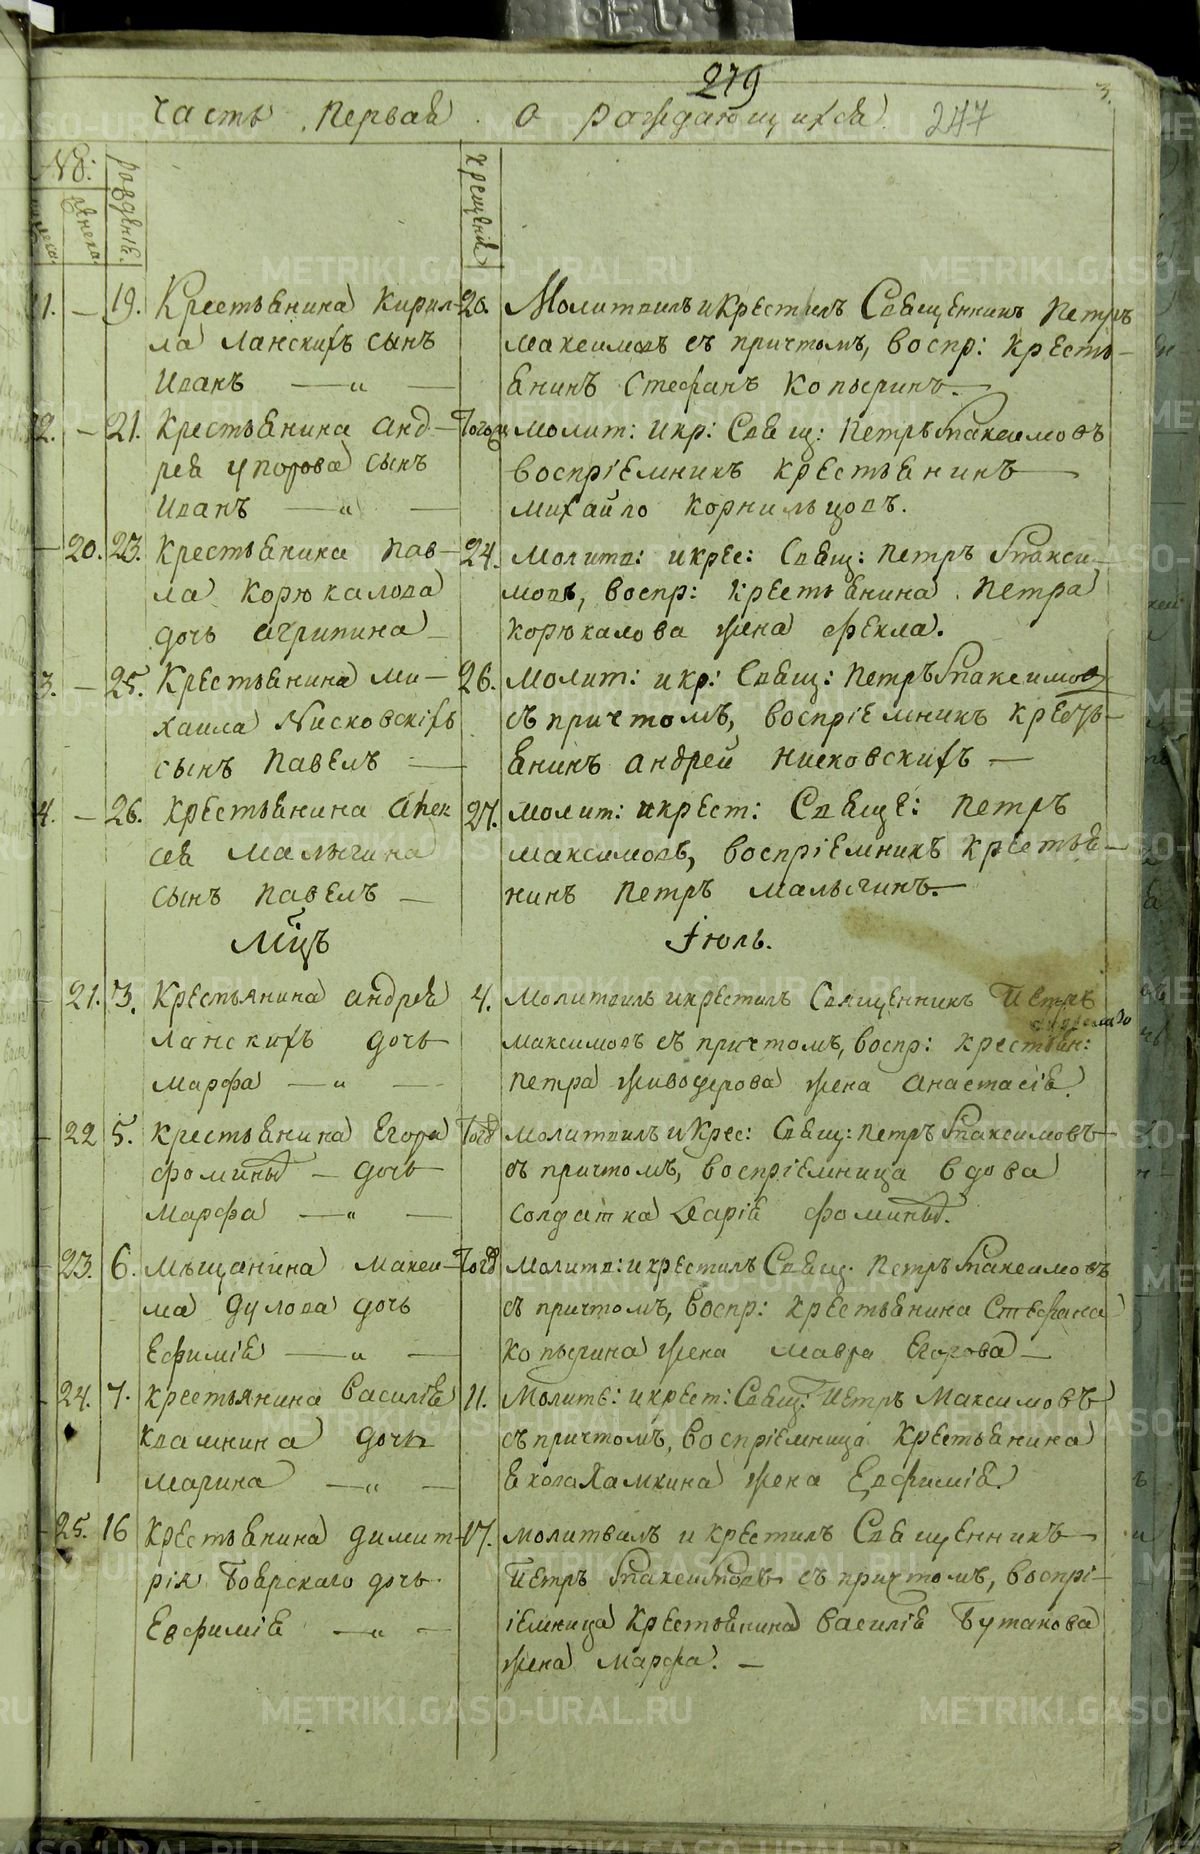 279
3.
Часть Первая о рождающихся 247
№:
рожденiе.
женска
крещенiя
1. — 19. Крестьянина Кирил-
ла Ланскихъ сынъ
Иванъ — „ —
20. Молитвилъ и Крестилъ Священникъ Петръ
Максимовъ съ причтомъ, воспр: Кресть-
янинъ Стефанъ Копысринъ. —
2. — 21. Крестьянина Анд-
рея Упорова сынъ
Иванъ — „ —
молит: и кр: Свящ: Петръ Максимовъ
воспрiемникъ Крестьянинъ
Михайло Корнильцовъ.
— 20. 23. Крестьянина Пав-
ла Корюкалова
дочь Агрипина —
24. Молитв: и крес: Свящ: Петръ Макси-
мовъ, воспр: Крестьянина Петра
Корюкалова жена Фекла.
3. — 25. Крестьянина Ми-
хаила Нисковскiхъ
сынъ Павелъ —
26. Молит: и кр: Свящ: Петръ Максимов
съ причтомъ, воспрiемникъ Кресть-
янинъ Андрей Нисковскихъ —
4. — 26. Крестьянина Алек
сея Малыгина
сынъ Павелъ —
27. молит: и крест: Священ: Петръ
Максимовъ, воспрiемникъ Крестья-
нинъ Петръ Малыгинъ. —
Мцъ Iюль.
21. 3. Крестьянина Андрея
Ланскихъ дочь
Марфа — „ —
4. Молитвилъ и крестилъ Священникъ Петръ
Максимовъ съ причтомъ, воспр: крестьян:
Петра Живодерова жена Анастасiя.
22 5. Крестьянина Егора
Фомины — дочь
Марфа — „ —
Тогд Молитвилъ и Крес: Свящ: Петръ Максимовъ
съ причтомъ, воспрiемница вдова
солдатка Дарiя Фомины.
23. 6. Мѣщанина Макси-
ма Дулова дочь
Ефимiя — „ —
Тогд Молитв: и крестилъ Свящ. Петръ Максимовъ
съ причтомъ, воспр: крестьянина Стефана
Копысрина жена Мавра Егорова —
24. 7. Крестьянина Василiя
Квашнина дочь
Марина — „ —
11. Молитв: и крест: Свящ: Петръ Максимовъ
съ причтомъ, воспрiемница Крестьянина
жена Евфимiя.
25. 16 Крестьянина Димит-
рiя Боярскаго дочь
Евфимiя — „ —
17. Молитвилъ и крестилъ Священникъ
Петръ Максимовъ съ причтомъ, воспрi-
iемница Крестьянина Василiя Бутакова
жена Марфа. —
METRIKI.GASO-URAL.RU